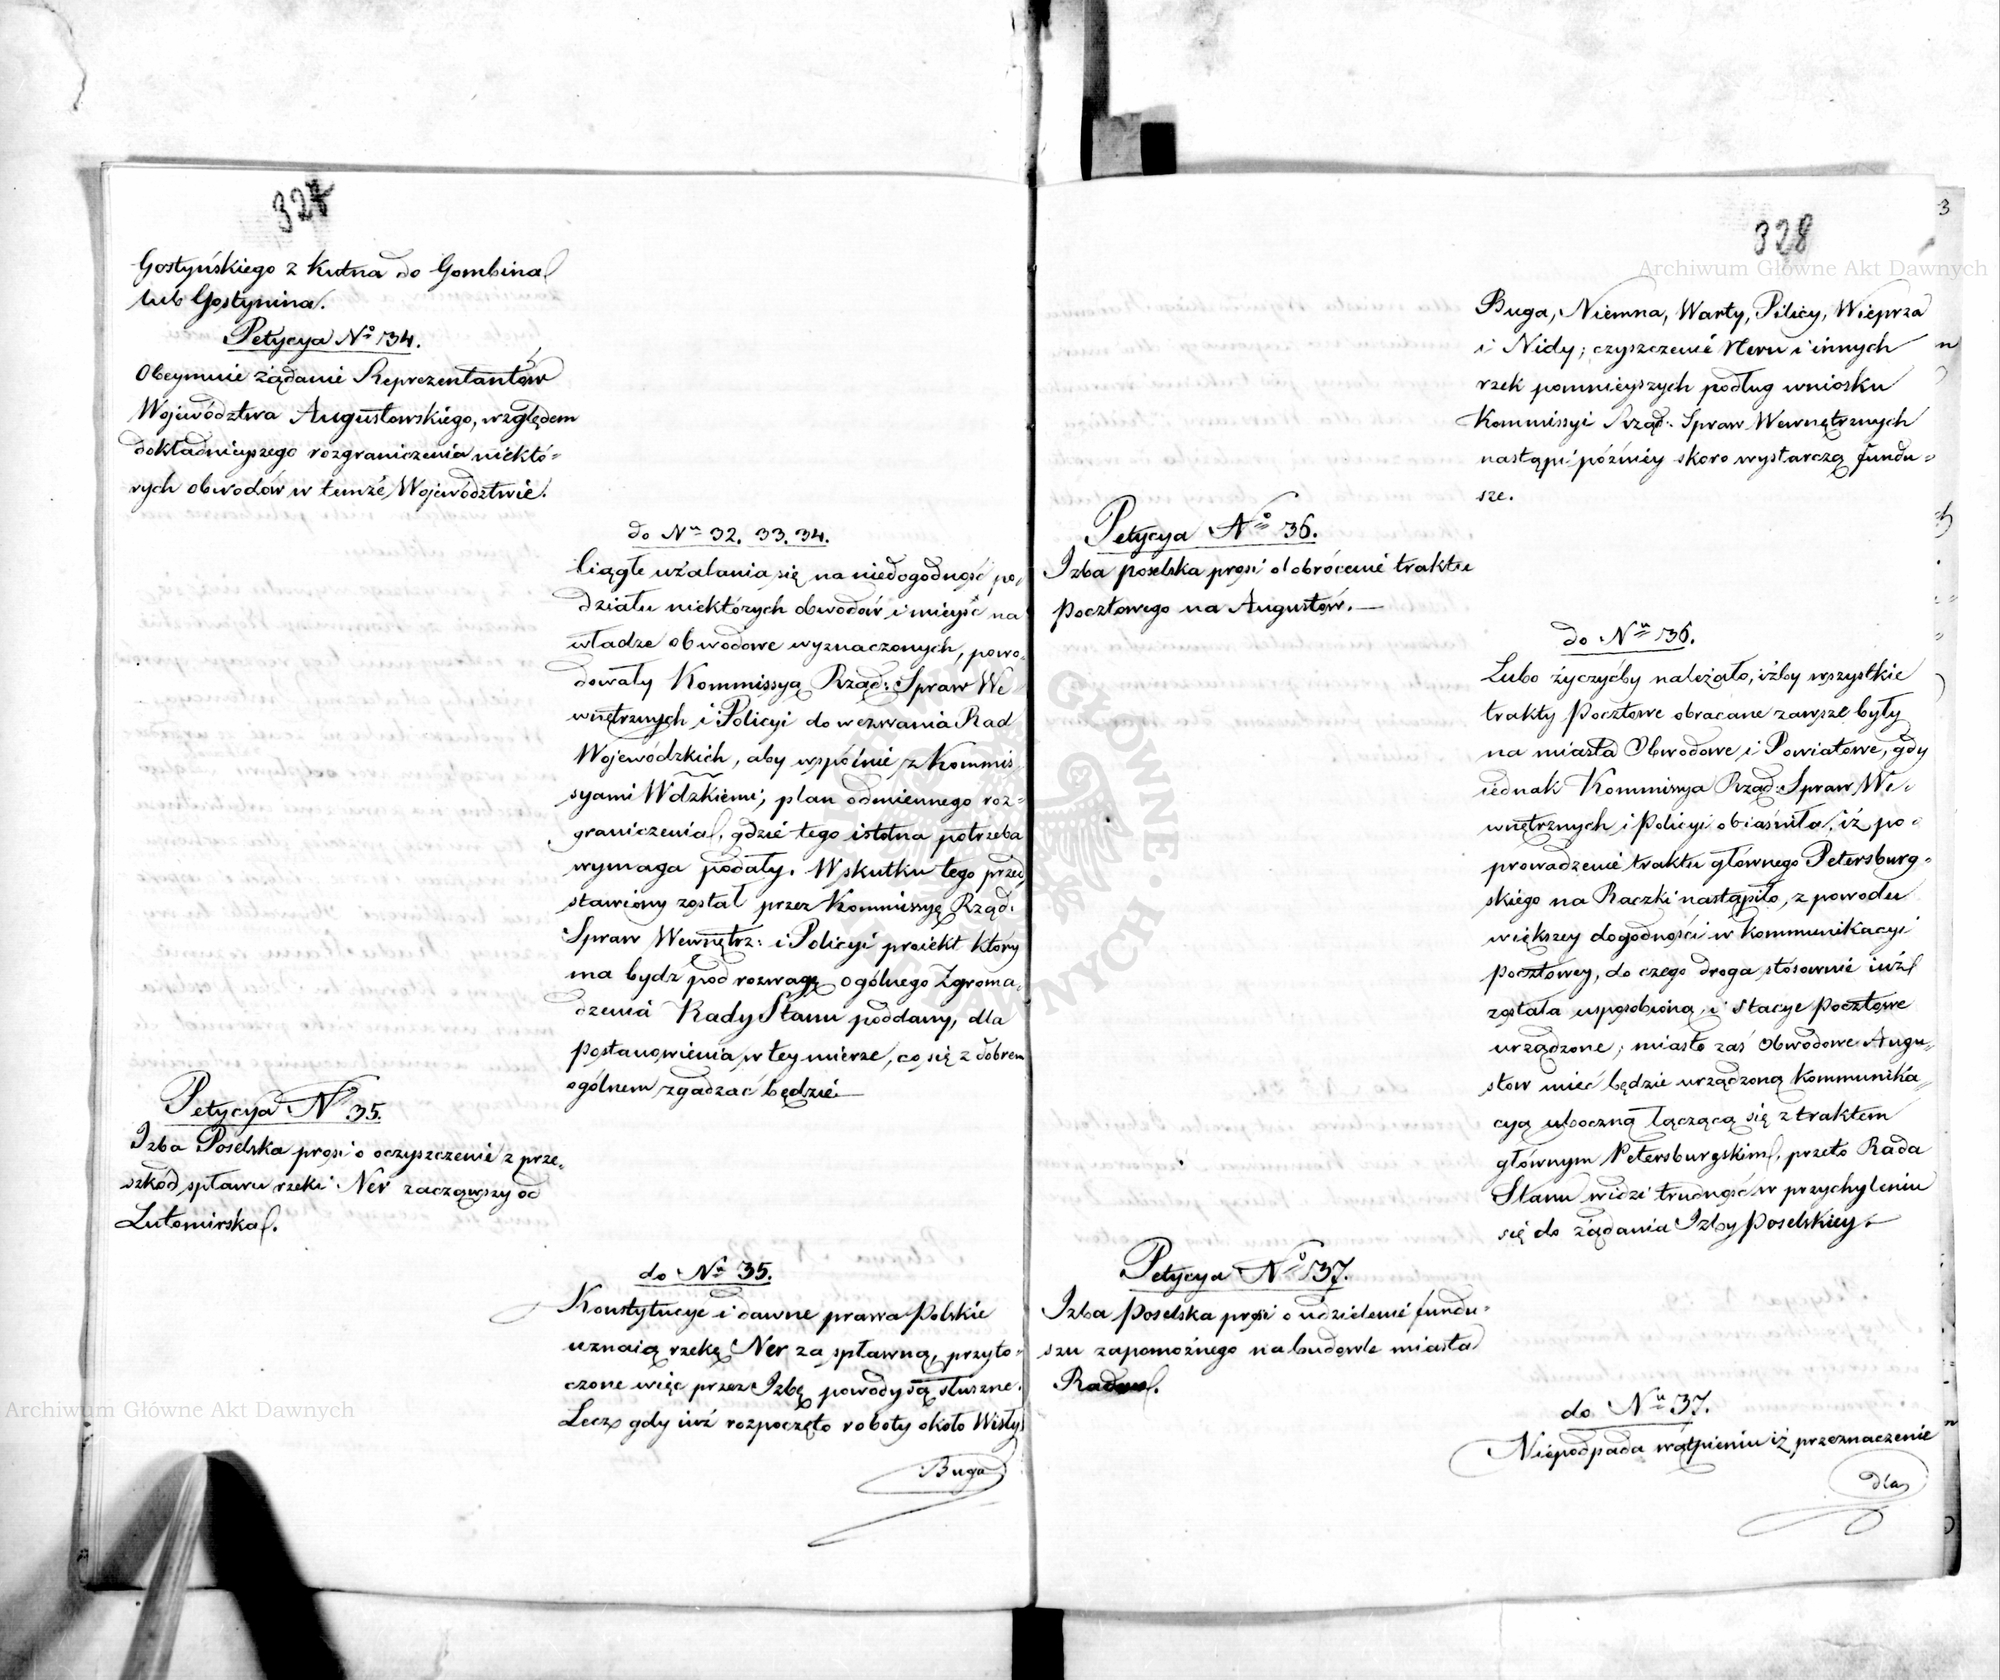 327
Gostyńskiego z Kutna do Gombina
lub Gostynina.
Petycya Nº 34.
Obeymuie żądanie Reprezentantów
Województwa Augustowskiego, względem
dokładnieyszego rozgraniczenia niektó=
rych obwodów w temże Województwie.
do Nru 32. 33. 34.
Ciągłe użalania się na niedogodność po,
działu niektórych obwodów i mieysc na
władze obwodowe wyznaczonych, powo,
dowały Kommissyą Rząd: Spraw We
wnętrznych i Policyi do wezwania Rad
Wojewódzkich, aby wspólnie z Kommis,
syami Wdzkiemi, plan odmiennego roz=
graniczenia, gdzie tego istotna potrzeba
wymaga podały. W skutku tego przed,
stawiony został przez Kommissyę Rząd:
Spraw Wewnętrz: i Policyi proiekt który
ma bydź pod rozwagę ogólnego Zgroma,
dzenia Rady Stanu poddany, dla
postanowienia w tey mierze, co się z dobrem
ogólnem zgadzać będzie.—
Petycya Nº 35.
Izba Poselska prosi o oczyszczenie z prze,
szkód spławu rzeki Ner zacząwszy od
Lutomirska.
do Nru 35.
Konstytucye i dawne prawa Polskie
uznaią rzekę Ner za spławną, przyto=
czone więc przez Izbę powody są słuszne.
Lecz gdy iuż rozpoczęto roboty około Wisły
Buga
328
Buga, Niemna, Warty, Pilicy, Wieprza
i Nidy; czyszczenie Neru i innych
rzek pomnieyszych podług wniosku
Kommissyi Rząd: Spraw Wewnętrznych
nastąpi późniéy skoro wystarczą fundu=
sze.
Petycya Nº 36.
Izba poselska prosi o obrócenie traktu
Pocztowego na Augustów.—
do Nru 36.
Lubo życzyćby należało, iżby wszystkie
trakty Pocztowe obracane zawsze były
na miasta Obwodowe i Powiatowe, gdy
iednak Kommissya Rząd: Spraw We=
wnętrznych i Policyi obiaśniła, iż po=
prowadzenie traktu głównego Petersburg=
skiego na Raczki nastąpiło, z powodu
większey dogodności w kommunikacyi
Pocztowey, do czego droga stosownie iuż
została usposobioną, i Stacye Pocztowe
urządzone; miasto zaś Obwodowe Augu=
stow mieć będzie urządzoną Kommunika=
cyą uboczną łączącą się z traktem
głównym Petersburgskim, przeto Rada
Stanu widzi trudność w przychyleniu
się do żądania Izby Poselskiey.
Petycya Nº 37.
Izba Poselska prosi o udzielenie fundu=
szu zapomożnego na budowle miasta
do Nru 37.
Niepodpada wątpieniu iż przeznaczenie
dla
Archiwum Główne Akt Dawnych
Archiwum Główne Akt Dawnych